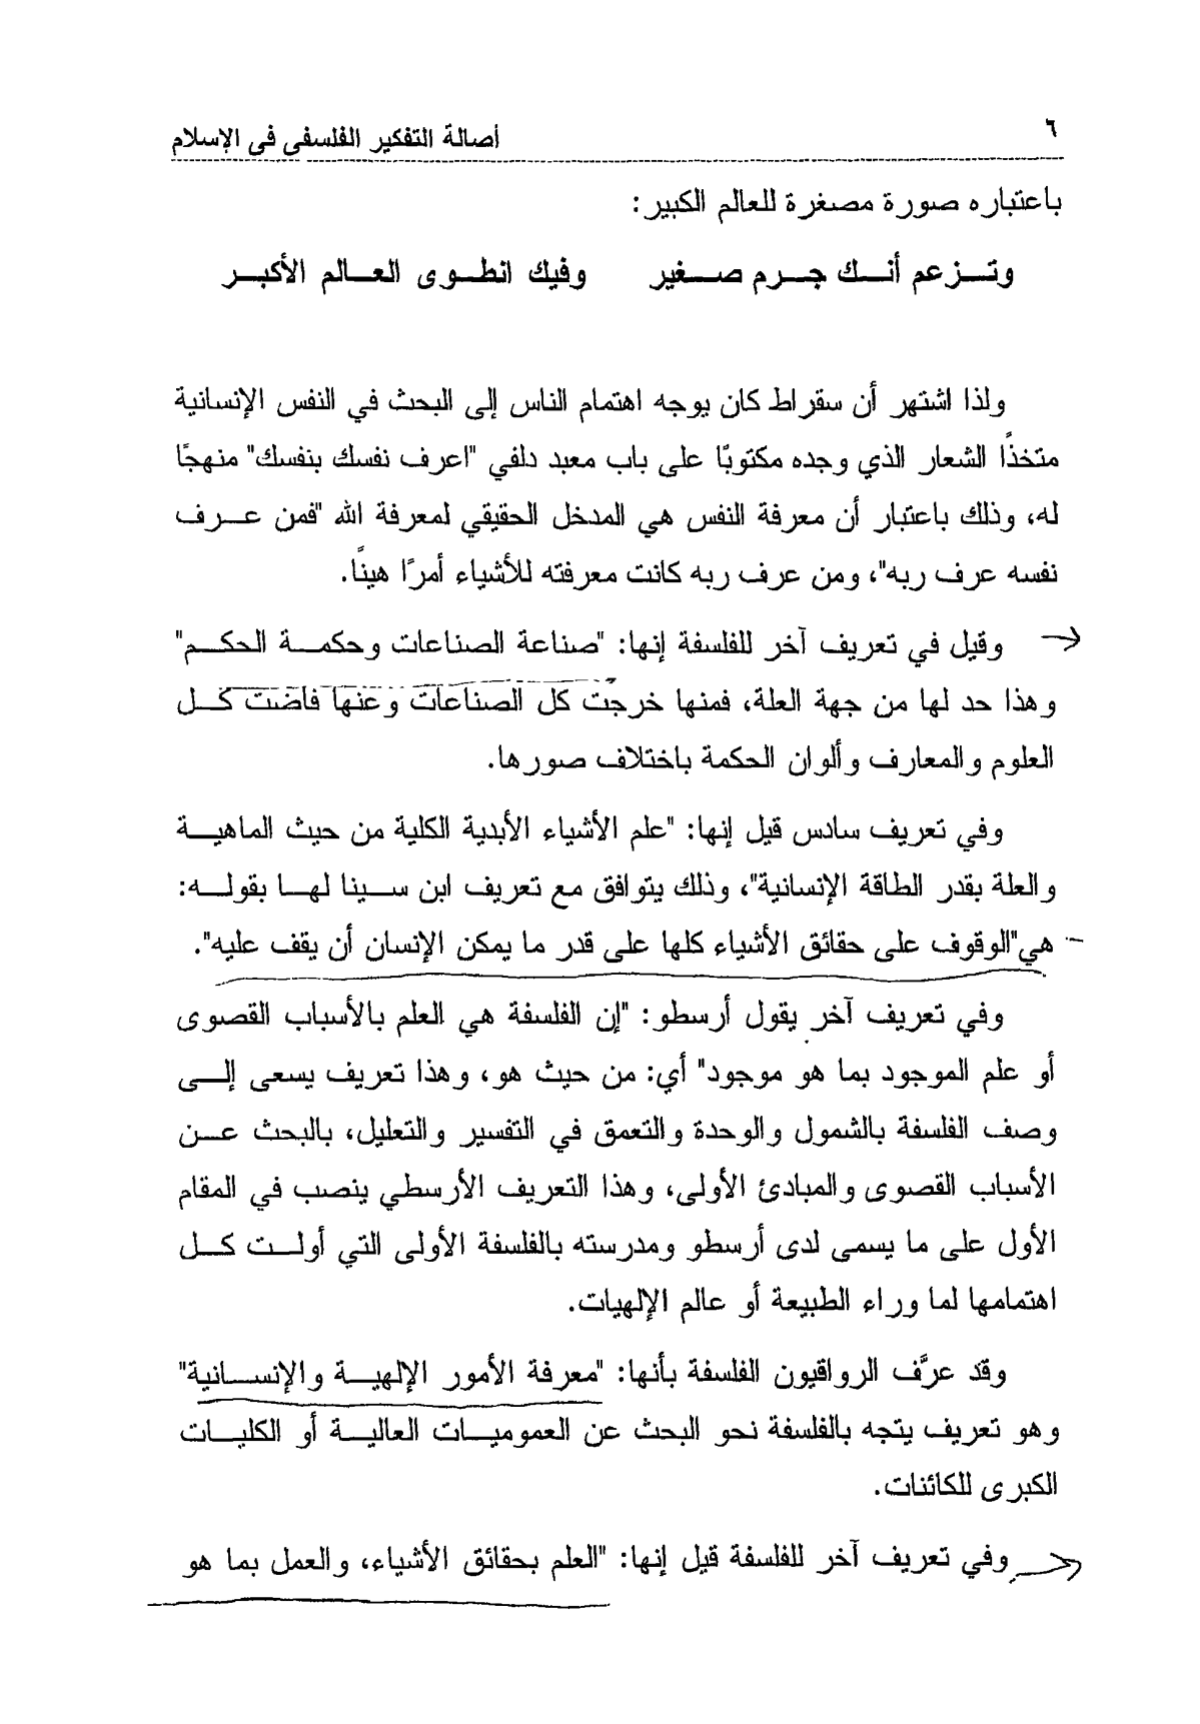 ٦
أصالة التفكير الفلسفى فى الإسلام
باعتباره صورة مصغرة للعالم الكبير:
وتزعم أنك جرم صغير وفيك انطوى العالم الأكبر
ولذا اشتهر أن سقراط كان يوجه اهتمام الناس إلى البحث في النفس الإنسانية
متخذًا الشعار الذي وجده مكتوبًا على باب معبد دلفي "اعرف نفسك بنفسك" منهجًا
له، وذلك باعتبار أن معرفة النفس هي المدخل الحقيقي لمعرفة الله "فمن عرف
نفسه عرف ربه"، ومن عرف ربه كانت معرفته للأشياء أمرًا هينًا.
وقيل في تعريف آخر للفلسفة إنها: "صناعة الصناعات وحكمة الحكم"
وهذا حد لها من جهة العلة، فمنها خرجت كل الصناعات وعنها فاضت كل
العلوم والمعارف وألوان الحكمة باختلاف صورها.
وفي تعريف سادس قيل إنها: "علم الأشياء الأبدية الكلية من حيث الماهية
والعلة بقدر الطاقة الإنسانية"، وذلك يتوافق مع تعريف ابن سينا لها بقوله:
هي"الوقوف على حقائق الأشياء كلها على قدر ما يمكن الإنسان أن يقف عليه".
وفي تعريف آخر يقول أرسطو: "إن الفلسفة هي العلم بالأسباب القصوى
أو علم الموجود بما هو موجود" أي: من حيث هو، وهذا تعريف يسعى إلى
وصف الفلسفة بالشمول والوحدة والتعمق في التفسير والتعليل، بالبحث عن
الأسباب القصوى والمبادئ الأولى، وهذا التعريف الأرسطي ينصب في المقام
الأول على ما يسمى لدى أرسطو ومدرسته بالفلسفة الأولى التي أولت كل
اهتمامها لما وراء الطبيعة أو عالم الإلهيات.
وقد عرَّف الرواقيون الفلسفة بأنها: "معرفة الأمور الإلهية والإنسانية"
وهو تعريف يتجه بالفلسفة نحو البحث عن العموميات العالية أو الكليات
الكبرى للكائنات.
وفي تعريف آخر للفلسفة قيل إنها: "العلم بحقائق الأشياء، والعمل بما هو